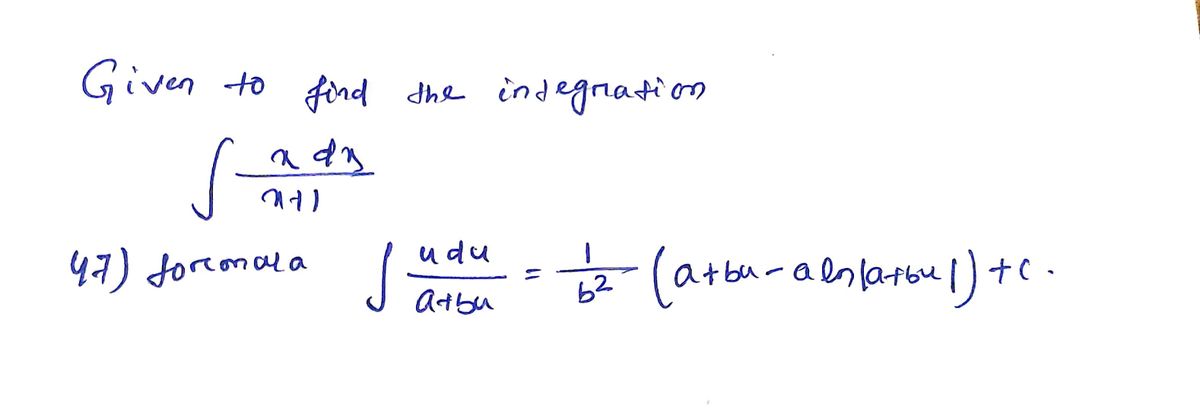 Given to find the integration
∫ x dx / x+1
47) formala ∫ u du / a+bu = 1/b² (a+bu - a ln|a+bu|) + c.